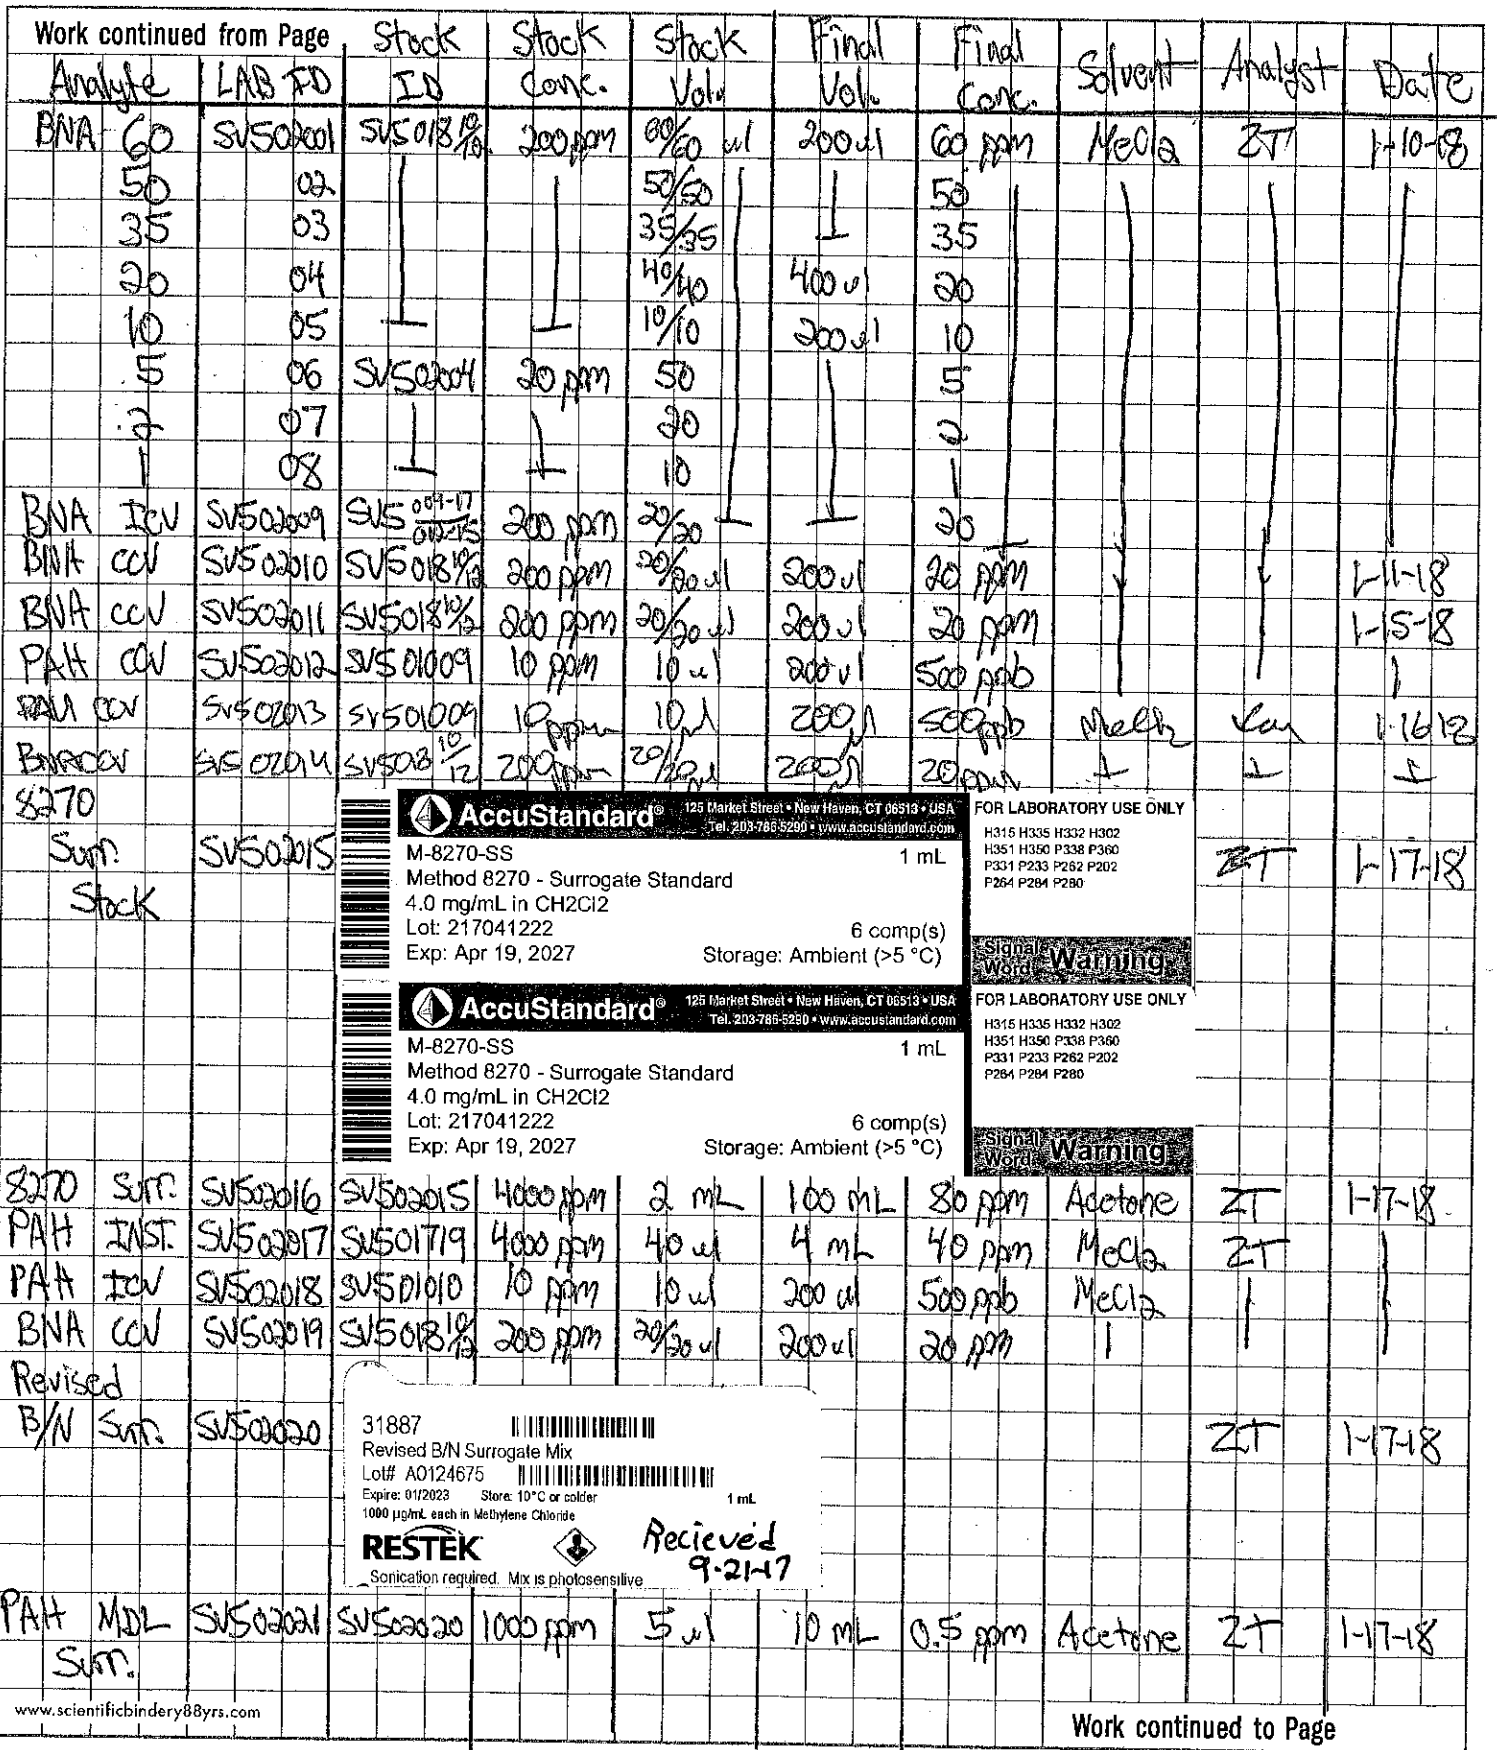 Work continued from Page
Analyte LAB ID Stock ID Stock Conc. Stock Vol. Final Vol. Final Conc. Solvent Analyst Date
BNA 60 SV502001 SV5018 10/12 200 ppm 60/60 ul 200 ul 60 ppm MeCl2 ZT 1-10-18
50 02 50/50 50
35 03 35/35 35
20 04 40/40 400 ul 20
10 05 10/10 200 ul 10
5 06 SV502004 20 ppm 50 5
2 07 20 2
1 08 10 1
BNA ICV SV502009 SV5 200 ppm 20/20 20
BNA CCV SV502010 SV5018 10/12 200 ppm 20/20 ul 200 ul 20 ppm 1-11-18
BNA CCV SV502011 SV5018 10/12 200 ppm 20/20 ul 200 ul 20 ppm 1-15-18
PAH CCV SV502012 SV501009 10 ppm 10 ul 200 ul 500 ppb
PAH CCV SV502013 SV501009 10 ppm 10 µl 200 µl 500 ppb
BNACCV SV502014 SV5018 10/12 200 ppm 20/20 µl 200 µl 20 ppm
8270
Surr. SV502015 ZT 1-17-18
Stock
AccuStandard® 125 Market Street • New Haven, CT 06513 • USA
Tel. 203-786-5290 • www.accustandard.com
M-8270-SS 1 mL
Method 8270 - Surrogate Standard
4.0 mg/mL in CH2Cl2
Lot: 217041222 6 comp(s)
Exp: Apr 19, 2027 Storage: Ambient (>5 °C)
FOR LABORATORY USE ONLY
H315 H335 H332 H302
H351 H350 P338 P360
P331 P233 P262 P202
P264 P284 P280
Signal Word Warning
AccuStandard® 125 Market Street • New Haven, CT 06513 • USA
Tel. 203-786-5290 • www.accustandard.com
M-8270-SS 1 mL
Method 8270 - Surrogate Standard
4.0 mg/mL in CH2Cl2
Lot: 217041222 6 comp(s)
Exp: Apr 19, 2027 Storage: Ambient (>5 °C)
FOR LABORATORY USE ONLY
H315 H335 H332 H302
H351 H350 P338 P360
P331 P233 P262 P202
P264 P284 P280
Signal Word Warning
8270 Surr. SV502016 SV502015 4000 ppm 2 mL 100 mL 80 ppm Acetone ZT 1-17-18
PAH INST. SV502017 SV501719 4000 ppm 40 ul 4 mL 40 ppm MeCl2 ZT
PAH ICV SV502018 SV501010 10 ppm 10 ul 200 ul 500 ppb MeCl2
BNA CCV SV502019 SV5018 10/12 200 ppm 20/20 ul 200 ul 20 ppm
Revised
B/N Surr. SV502020 ZT 1-17-18
31887
Revised B/N Surrogate Mix
Lot# A0124675
Expire: 01/2023 Store: 10°C or colder 1 mL
1000 µg/mL each in Methylene Chloride
RESTEK Recieved
9-21-17
Sonication required. Mix is photosensitive
PAH MDL SV502021 SV502020 1000 ppm 5 ul 10 mL 0.5 ppm Acetone ZT 1-17-18
Surr.
www.scientificbindery88yrs.com
Work continued to Page